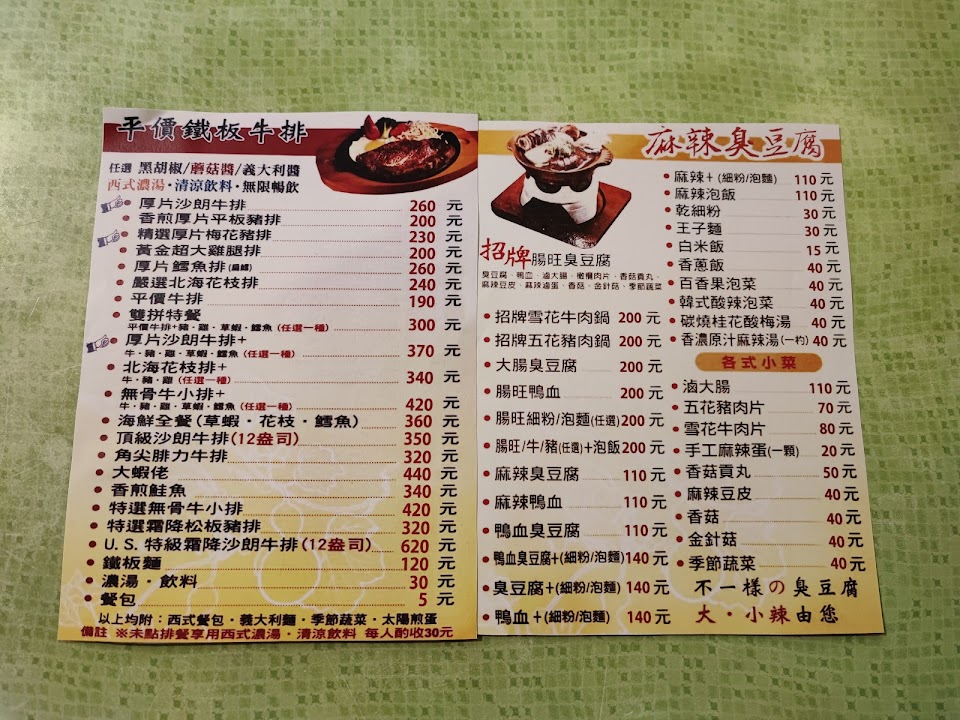 平價鐵板牛排
任選 黑胡椒/蘑菇醬/義大利醬
西式濃湯・清涼飲料・無限暢飲
厚片沙朗牛排 260 元
香煎厚片平板豬排 200 元
精選厚片梅花豬排 230 元
黃金超大雞腿排 200 元
厚片鱈魚排(扁鱈) 260 元
嚴選北海花枝排 240 元
平價牛排 190 元
雙拼特餐
平價牛排+豬・雞・草蝦・鱈魚(任選一種) 300 元
厚片沙朗牛排+
牛・豬・雞・草蝦・鱈魚(任選一種) 370 元
北海花枝排+
牛・豬・雞(任選一種) 340 元
無骨牛小排+
牛・豬・雞・草蝦・鱈魚(任選一種) 420 元
海鮮全餐(草蝦・花枝・鱈魚) 360 元
頂級沙朗牛排(12盎司) 350 元
角尖腓力牛排 320 元
大蝦佬 440 元
香煎鮭魚 340 元
特選無骨牛小排 420 元
特選霜降松板豬排 320 元
U.S.特級霜降沙朗牛排(12盎司) 620 元
鐵板麵 120 元
濃湯・飲料 30 元
餐包 5 元
以上均附:西式餐包・義大利麵・季節蔬菜・太陽煎蛋
備註 ※未點排餐享用西式濃湯・清涼飲料 每人酌收30元
麻辣臭豆腐
招牌腸旺臭豆腐
臭豆腐、鴨血、滷大腸、橄欖肉片、香菇貢丸、
麻辣豆皮、麻辣滷蛋、香菇、金針菇、季節蔬菜
招牌雪花牛肉鍋 200 元
招牌五花豬肉鍋 200 元
大腸臭豆腐 200 元
腸旺鴨血 200 元
腸旺細粉/泡麵(任選) 200 元
腸旺/牛/豬(任選)+泡飯 200 元
麻辣臭豆腐 110 元
麻辣鴨血 110 元
鴨血臭豆腐 110 元
鴨血臭豆腐+(細粉/泡麵) 140 元
臭豆腐+(細粉/泡麵) 140 元
鴨血+(細粉/泡麵) 140 元
麻辣+(細粉/泡麵) 110 元
麻辣泡飯 110 元
乾細粉 30 元
王子麵 30 元
白米飯 15 元
香蔥飯 40 元
百香果泡菜 40 元
韓式酸辣泡菜 40 元
碳燒桂花酸梅湯 40 元
香濃原汁麻辣湯(一杓) 40 元
各式小菜
滷大腸 110 元
五花豬肉片 70 元
雪花牛肉片 80 元
手工麻辣蛋(一顆) 20 元
香菇貢丸 50 元
麻辣豆皮 40 元
香菇 40 元
金針菇 40 元
季節蔬菜 40 元
不一樣の臭豆腐
大・小辣由您